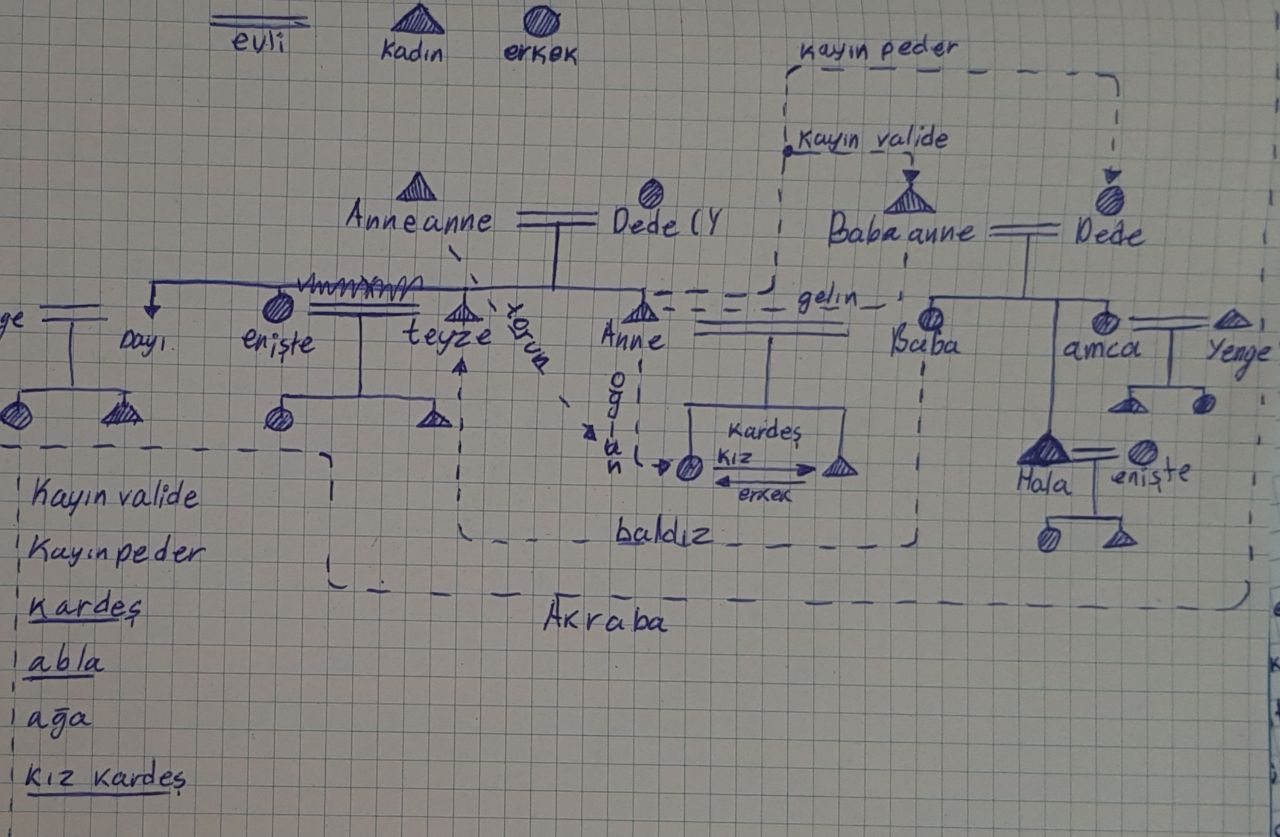 evli
kadın
erkek
kayın peder
kayın valide
Anneanne
Dede (Y
Babaanne
Dede
gelin
ge
Dayı
enişte
teyze
Anne
Baba
amca
Yenge
torun
oğlan
kardeş
kız
erkek
Hala
enişte
baldız
Akraba
Kayın valide
Kayınpeder
kardeş
abla
ağa
kız kardeş